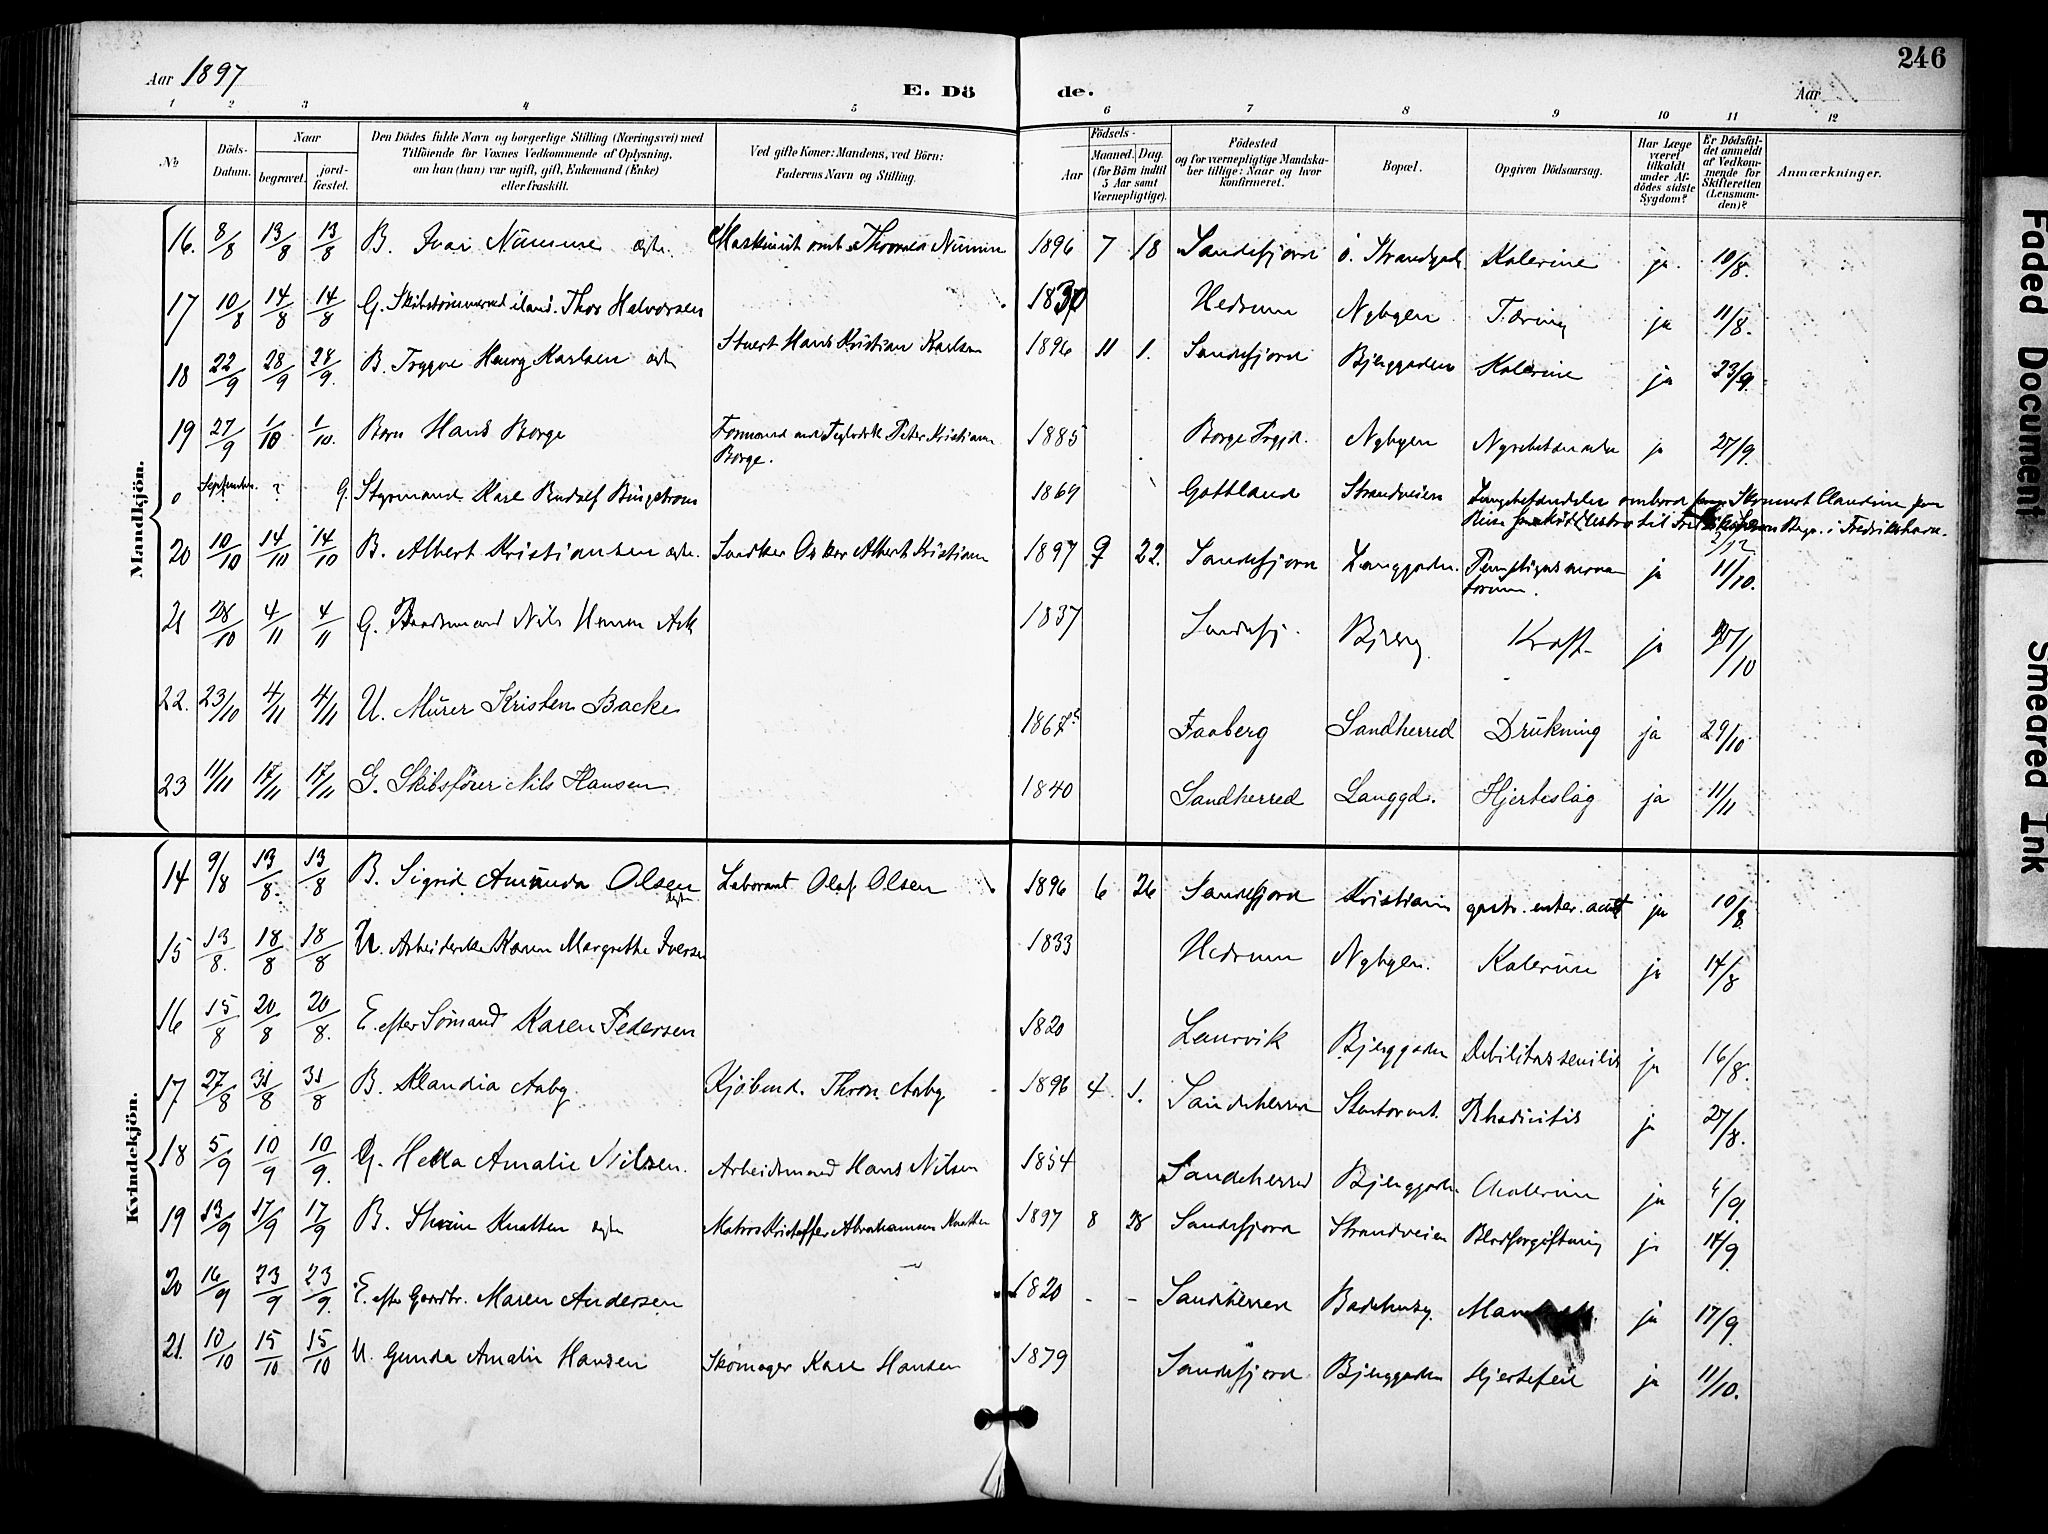 246
Aar 1897
E. Dö de.
Aar
1 2 3 4 5 6 7 8 9 10 11 12
No
Döds-Datum.
Naar
begravet.
jord-fæstet.
Den Dödes fulde Navn og borgerlige Stilling (Næringsvei) med
Tilföiende for Voxnes Vedkommende af Oplysning,
om han (hun) var ugift, gift, Enkemand (Enke)
eller fraskilt.
Ved gifte Koner: Mandens, ved Börn:
Faderens Navn og Stilling.
Födsels-
Aar
Maaned. Dag.
(for Börn indtil
5 Aar samt
Værnepligtige).
Födested
og for værnepligtige Mandska-
ber tillige: Naar og hvor
konfirmeret.
Bopæl.
Opgiven Dödsaarsag.
Har Læge
været
tilkaldt
under Af-
dödes sidste
Sygdom?
Er Dödsfal-
det anmeldt
af Vedkom-
mende for
Skifteretten
(Lensman-
den)?
Anmærkninger.
Mandkjön.
16. 8/8 13/8 13/8 B. Ivar Numme ægte. Maskinist Thomas Numme 1896 7 18 Sandefjord ö. Strandgade Kolerine ja. 10/8.
17 10/8 14/8 14/8 G. Thor Halvorsen 1830 Hedrum Nybyen Tæring ja 11/8.
18 22/9 28/9 28/9. B. Trygve Henry Karlsen ægte Stuert Hans Kristian Karlsen 1896 11 1. Sandefjord Bjerggaden Kolerine ja 23/9.
19 27/9 1/10 1/10. Barn Hans Borge Formand Peter Kristian
Borge. 1885 Borge Nybyen ja 27/9.
0 September ? G. Styrmand Karl Rudolf 1869 Gottland Strandveien ombord Skonnert Claudine
Reise til i Fredrikshavn.
20 10/10 14/10 14/10 B. Albert Kristiansen ægte. Snedker Oskar Albert Kristiansen 1897 9 22. Sandefjord Langgaden. Pemphigus neona-
torum. ja 11/10.
21 28/10 4/11 4/11 G. Nils Ask 1837 Sandefj. Bjerg Kræft ja /10
22. 23/10 4/11 4/11 U. Murer Kristen Backe 1867 Faaberg Sandherred Drukning ja 29/10.
23 11/11 17/11 17/11 G. Skibsförer Nils Hansen 1840 Sandherred Langgd. Hjerteslag ja 11/11
Kvindekjön.
14 9/8 13/8. 13/8 B. Sigrid Amunda Olsen ægte Laborant Olaf Olsen 1896 6 26 Sandefjord gastr. enter. acut ja 10/8
15 13/8. 18/8 18/8 U. Arbeiderske Karen Margrethe Iversen 1833 Hedrum Nybyen. Kolerine ja 14/8
16 15/8 20/8 20/8. E. efter Sömand Karen Pedersen 1820 Laurvik Bjerggaden Debilitas senilis ja 16/8.
17 27/8 31/8 31/8 B. Klandia Aaby. Kjöbmd. Thron Aaby 1896 4 1. Sandeherred Rhachitis ja 27/8.
18 5/9 10/9 10/9. G. Hella Amalie Nilsen. Arbeidsmand Hans Nilsen 1854 Sandeherred Bjerggaden Cholerine ja 6/9
19 13/9 17/9 17/9 B. Knatten ægte Matros Kristoffer Abrahamsen Knatten 1897 8 28 Sandefjord Strandveien Blodforgiftning ja 17/9.
20 16/9 23/9 23/9. E. efter Gaardbr. Maren Andersen 1820 - - Sandeherred ja 17/9.
21. 10/10 15/10 15/10 U. Gunda Amalie Hansen Skomager Karl Hansen 1879 Sandefjord Bjerggaden Hjertefeil ja 11/10.
Faded Document
Smeared Ink